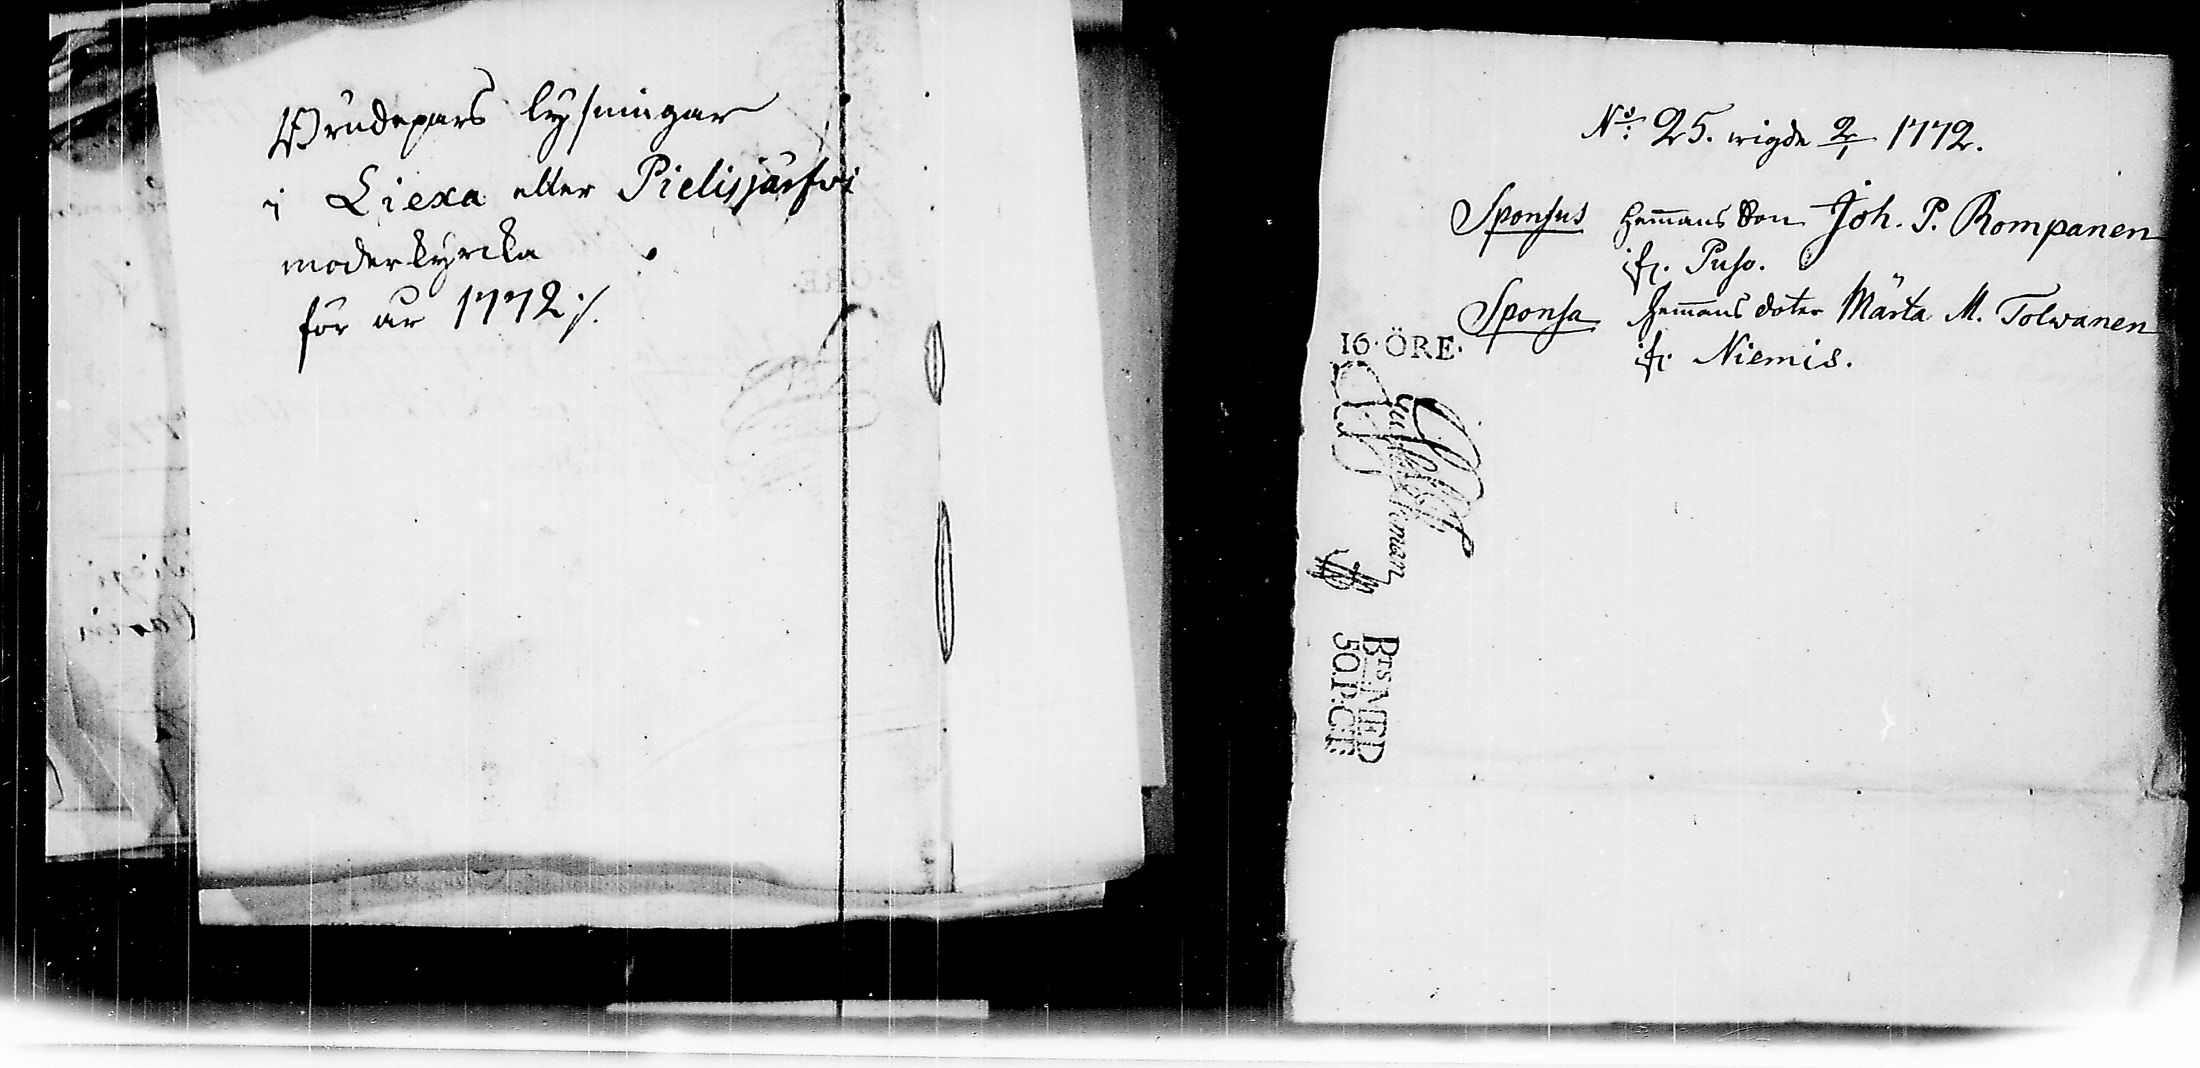 Brudepars lysningar
i Liexa eller Pielisjärfvi
moderkyrcka
för år 1772 ⁒.
No: 25. wigde 2/1 1772.
Sponsus Hem̄ans Son Joh. P. Rompanen
ifr. Puso.
Sponsa Hem̄ans doter Märta M. Tolwanen
ifr. Niemis.
16·ÖRE·
BTS MED
50.P:CT